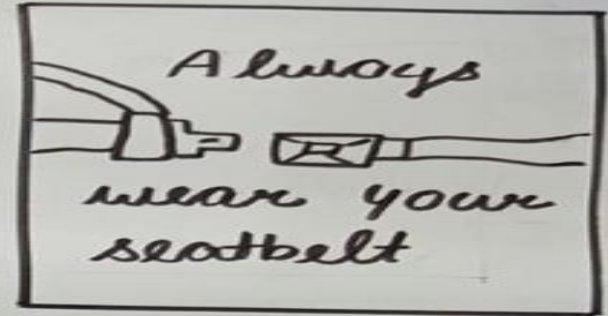 Always
wear your
seatbelt